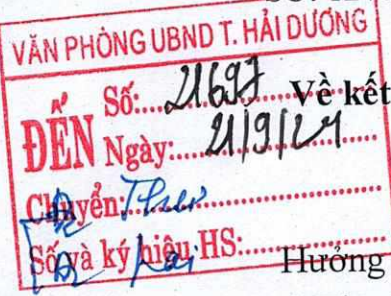 VĂN PHÒNG UBND T. HẢI DƯƠNG
ĐẾN
Số: 21697 Về kết
Ngày: 21/9/24
Chuyển:
Số và ký hiệu HS:
Hưởng